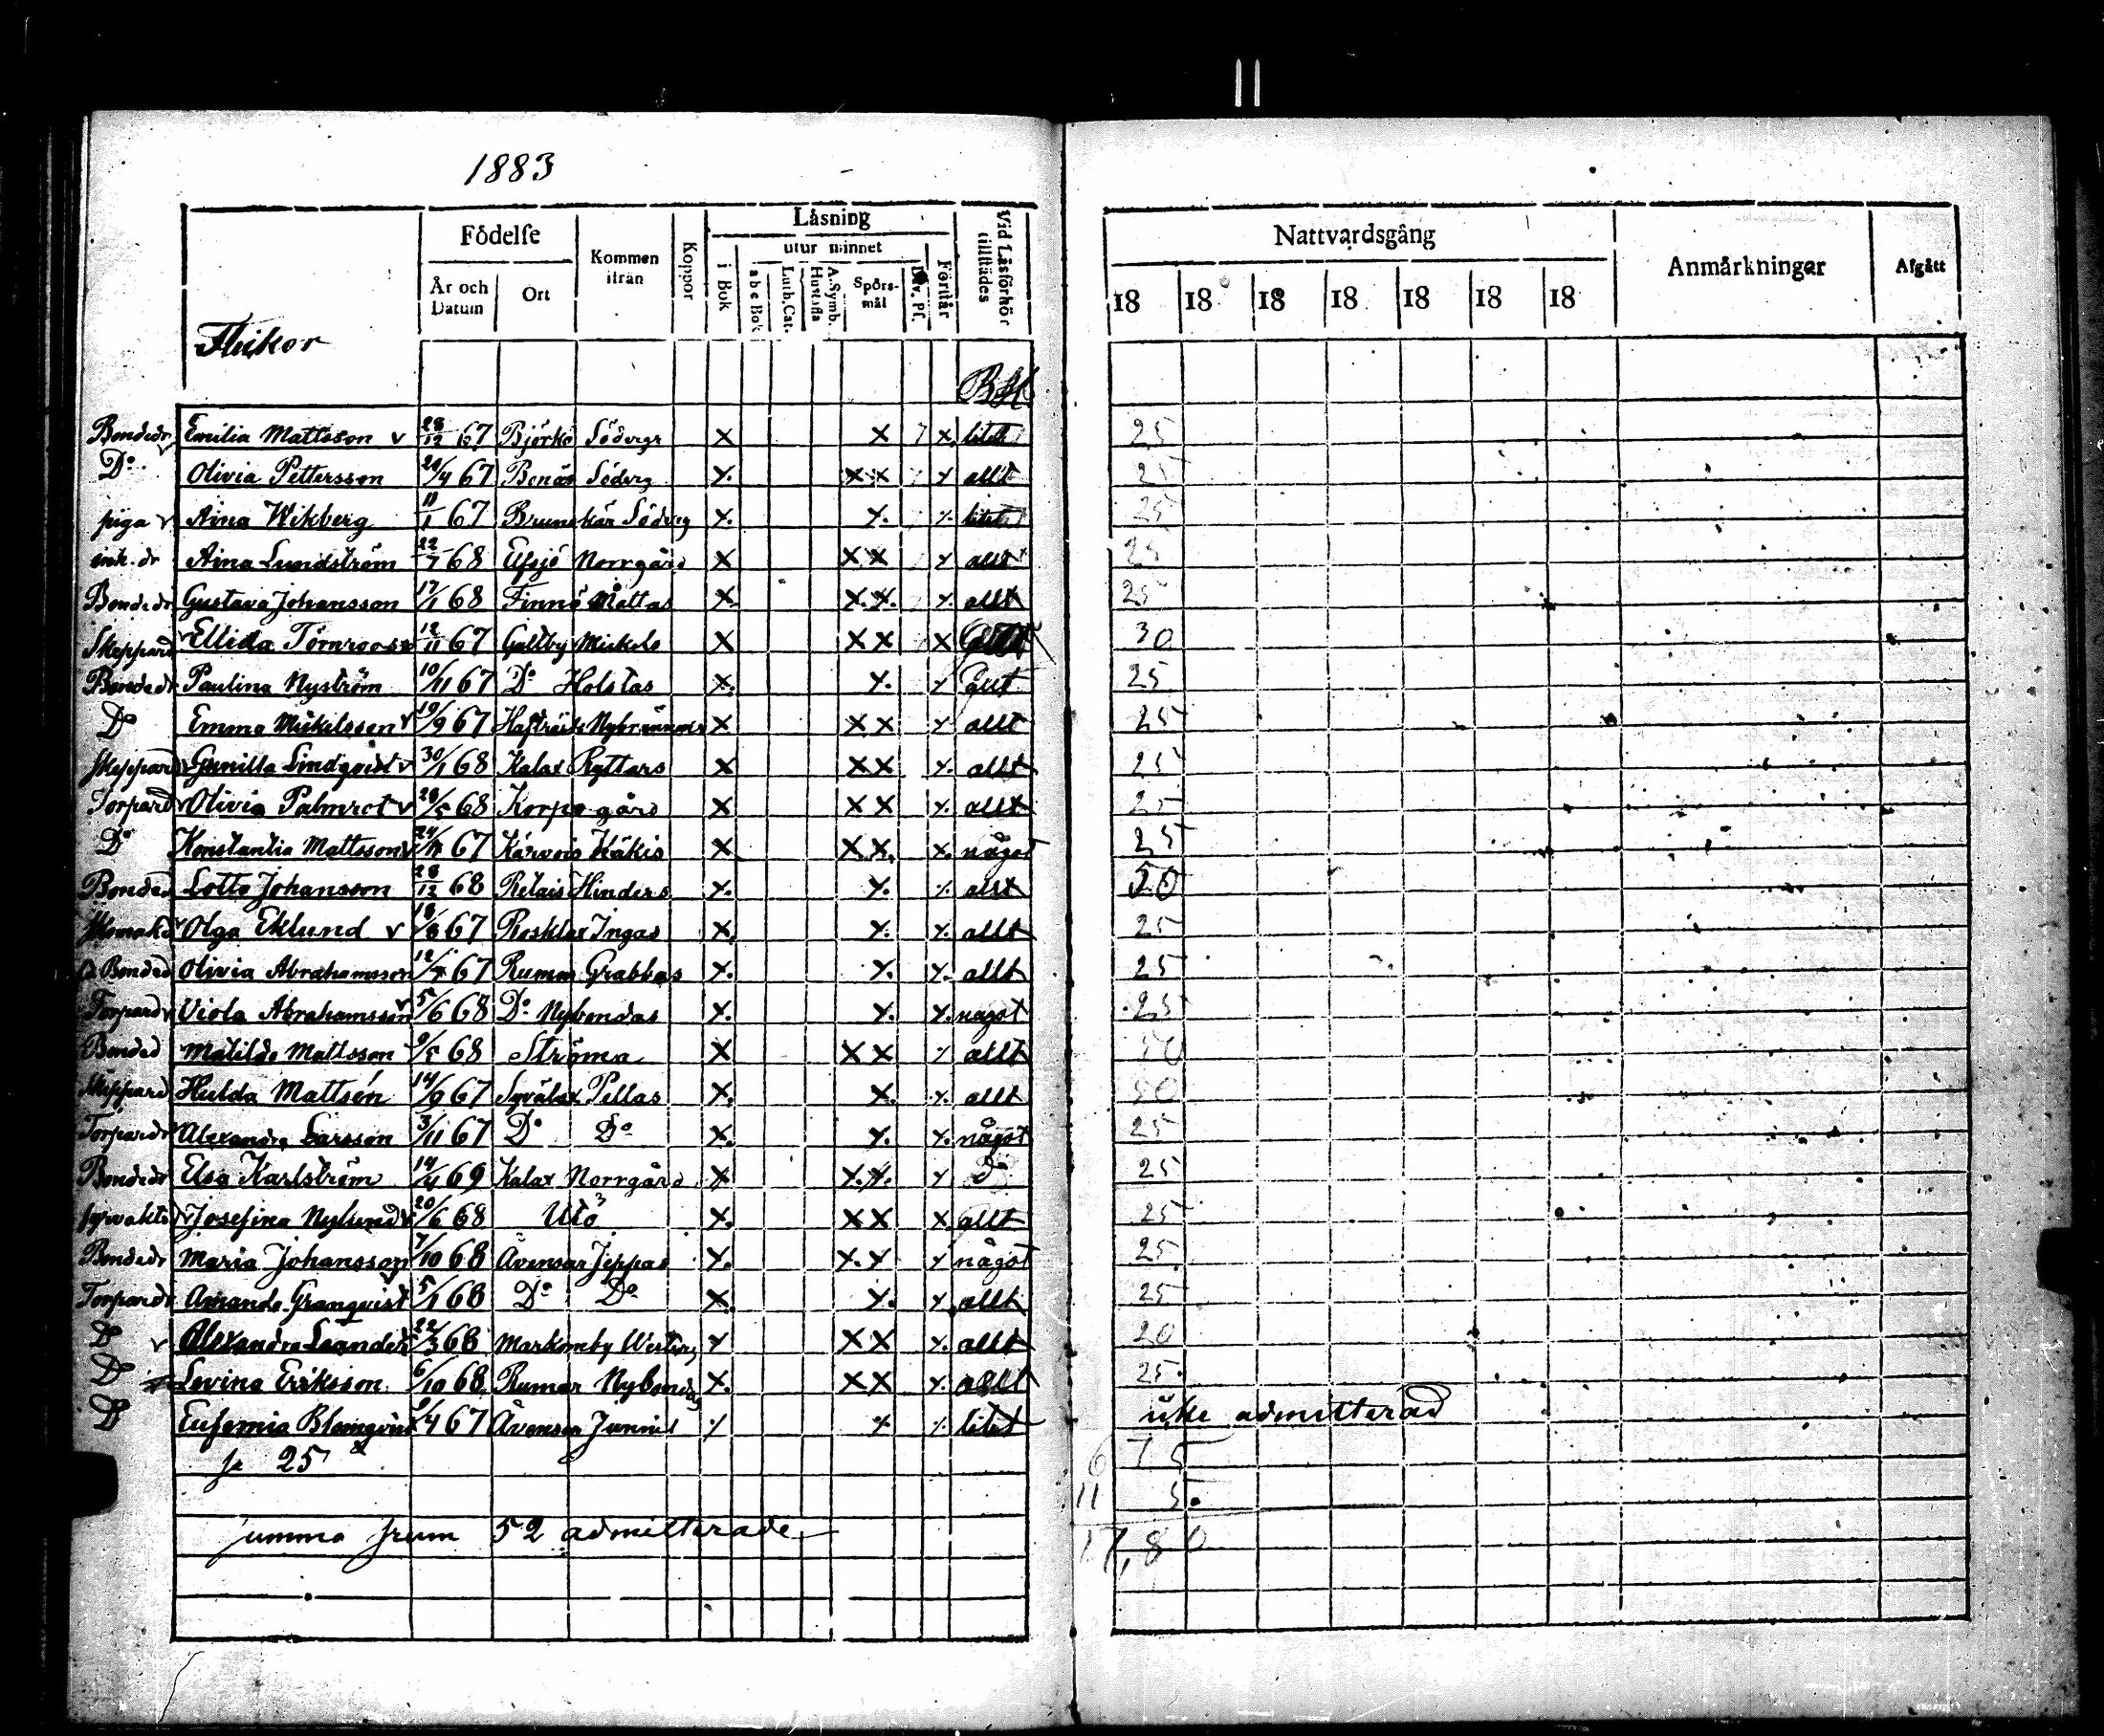 1883
Flickor
Födelse
År och Datum
Ort
Kommen ifrån
Koppor
Läsning
i Bok
utur minnet
abc Bok
Luth. Cat.
A. Symb. Hustafla
Spörsmål
Dav. Ps.
Förstår
Vid Läsförhör tillstädes
Nattvardsgång
18 18 18 18 18 18 18
Anmärkningar
Afgått
Bonded Emilia Mattsson v 28/12 67 Björkö Söderg x x x litet 25
Do Olivia Pettersson 20/4 67 Benäs Söderg x xx x allt 25
piga v Aina Wikberg 11/1 67 Brunskär Söderg x x x litet 25
inh. dr Aina Lundström 22/7 68 Elfsjö Norrgård x xx x allt 25
Bondedr Gustava Johansson 17/1 68 Finnö Mattas x x.x. x allt 25
Skeppard v Ellida Törnroos v 12/11 67 Galtby Mickels x xx x 30
Bondedr Paulina Nyström 10/11 67 Do Holstas x x x Gut 25
Do Emma Mickelsson v 19/9 67 x xx x allt 25
Skeppard v Gunilla Lindqvist v 30/1 68 Kalax Ryttars x xx x allt 25
Torpard v Olivia Palmrot v 28/5 68 Korpo gård x xx x allt 25
Do Konstantia Mattsson 67 Kärvois Käkis x xx x något 25
Bonded Lotta Johansson 28/12 68 Retais Hinders x x x allt 50
Olga Eklund v 67 Rosklax Ingas x x x allt 25
Bonded Olivia Abrahamsson 67 Rumar Grabbas x x x allt 25
Torpard v Viola Abrahamsson v 5/6 68 Do Nybondas x x x något 25
Bonded Matilda Mattsson 9/5 68 Ströma x xx x allt 50
Skeppard Hulda Mattsén 14/9 67 Syvälax Pellas x x x allt 50
Torpardr Alexandra Larsson 3/11 67 Do Do x x x något 25
Bondedr Elsa Karlström 14/4 69 Kalax Norrgård x x.x. x Do 25
fyrvaktd v Josefina Nylund v 20/6 68 Utö x xx x allt 25
Bondedr Maria Johansson 7/10 68 Åvensar Jeppas x x.x x något 25
Torpardr Amanda Granqvist 5/1 68 Do Do x x x allt 25
D v Alexandra Leander 22/3 68 Markomby Westerg x xx x allt 20
D Levina Eriksson 6/10 68 Rumar Nybondas x xx x allt 25
D Eufemia Blomqvist 9/4 67 Åvensar Junnil x x x litet icke admitterad
25
6 75
11 5.
summa 52 admitterade
17,80